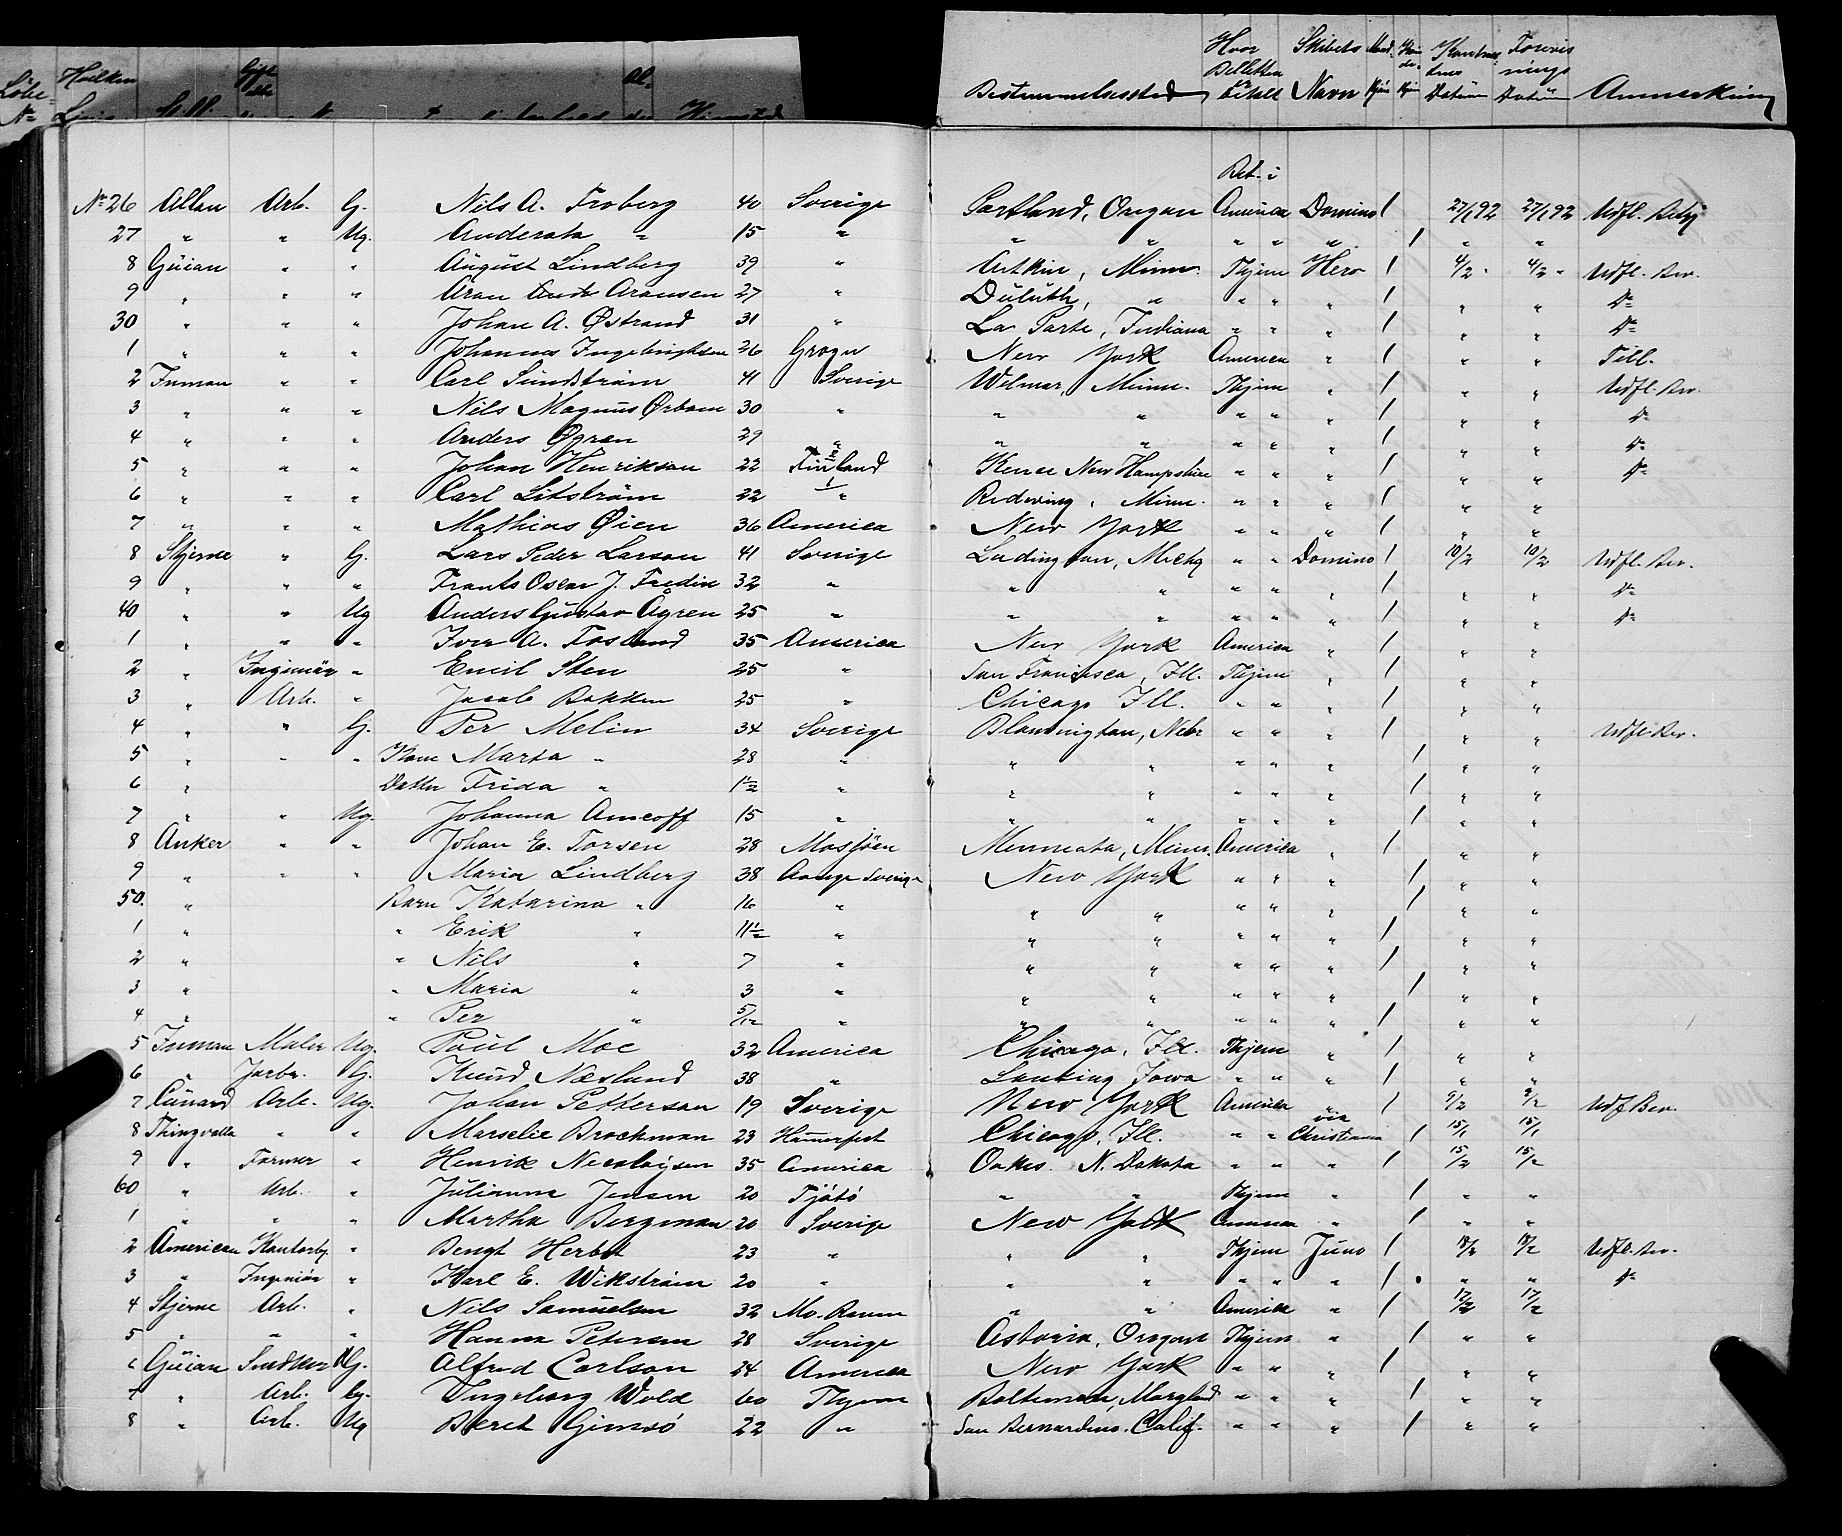 Löbe- Hvilken
No Linie Alder Hjemsted
Bestemmelsessted Hvor Billetten betalt Skibets Navn Mand-kjön Kvin-de-kjön Datum Forevisnings Datum Anmerkning
Bet. i
No 26 Allan Arb. G. Nils A. Froberg 40 Sverige Portland, Oregon America Domino 1 27/1 92 27/1 92
27 " " Ug. " 15 " " " " " " 1 " "
8 Guion " " August Lindberg 39 " Aitkin, Minn. Thjem Hero 1 4/2 " 4/2 " Udfl. Bev.
9 " " " Aron Aronsen 27 " Duluth, " " " " 1 " " do
30 " " " Johan A. Østrand 31 " La Porte, Indiana " " " 1 " " do
1 " " " Johannes Ingebrigtsen 26 New York America " 1 " "
2 Inman " " Carl Sundström 41 Sverige Wilmar, Minn. Thjem " 1 " " Udfl. Bev.
3 " " " Nils Magnus 30 " " " " " " 1 " " do
4 " " " Anders Øgren 29 " " " " " " 1 " " do
5 " " " Johan Henrikson 22 Finland New Hampshire " " " 1 " " do
6 " " " Carl Litström 22 " Redwing, Minn. " " " 1 " "
7 " " " Mathias Øien 36 America New York " " " 1 " "
8 Stjerne " G. Lars Peder Larson 41 Sverige Ludington, Michg " " Domino 1 10/2 10/2 Udfl. Bev.
9 " " " Frants Oscar J. Fredin 32 " " " " " " 1 " " do
40 " " Ug Anders Gustav Ågren 25 " " " " " " 1 " " do
1 " " " Iver A. Fosland 35 America New York America " 1 " "
2 " Ingeniör " Emil Sten 25 " San Francisco, Ill. Thjem " 1 " "
3 " Arb. " Jacob Bakken 25 " Chicago Ill. " " " 1 " "
4 " " G. Per Melin 34 Sverige Bloomington, Nebr " " " 1 " " Udfl. Bev.
5 " " " Kone Marta " 28 " " " " " " 1 " "
6 " Datter Frida " 1½ " " " " " " 1 " "
7 " " Ug. Johanna Amcoff 15 " " " " " " 1 " "
8 Anker " " Johan E. Torsen 28 Mosjöen Minneota, Minn. America " 1 " "
9 " " " Maria Lindberg 38 Sverige New York " " " 1 " "
50. " Barn Katarina " 16 " " " " " " 1 " "
1 " " Erik " 11½ " " " " " " 1 " "
2 " " Nils " 7 " " " " " " 1 " "
3 " " Maria " 3 " " " " " " 1 " "
4 " " Per " 5/12 " " " " " " 1 " "
5 Inman Maler Ug. Paul Moe 32 America Chicago, Ill. Thjem " 1 " "
6 " G. Knud Næsland 38 " Iowa " " " 1 " "
7 Cunard Arb. Ug. Johan Petterson 19 Sverige New York America " 1 9/2 9/2 Udf Bev.
8 Thingvalla " " Marselie Brockman 23 Hammerfest Chicago, Ill. " " via Christiania 1 15/1 15/1
9 " Farmer " Henrik Nicolaysen 35 America Oakes. N. Dakota " " " 1 15/2 15/2
60 " Arb. " Julianna Jensen 20 Tjötö " " Thjem " 1 " "
1 " " " Martha Bergman 20 Sverige New York America " 1 " "
2 American Kontorby. " Bengt Herbst 23 " " " Thjem Juno 1 18/2 18/2 Udfl. Bev.
3 " Ingeniör " Karl E. Wikström 20 " " " " " " 1 " " do
4 Stjerne Arb. " Nils Samuelsen 32 Mo. Ranen " " America " 1 17/2 17/2
5 " " " Hanna Petersen 28 Sverige Astoria, Oregon Thjem " 1 " "
6 Guion Snedker G. Alfred Carlson 54 America New York " " " 1 " "
7 " Arb. G. Ingeborg Wold 60 Thjem Baltimore, Maryland " " " 1 " "
8 " Arb. Ug Beret Gimsö 22 " San Bernardino. Calif. " " " 1 " "